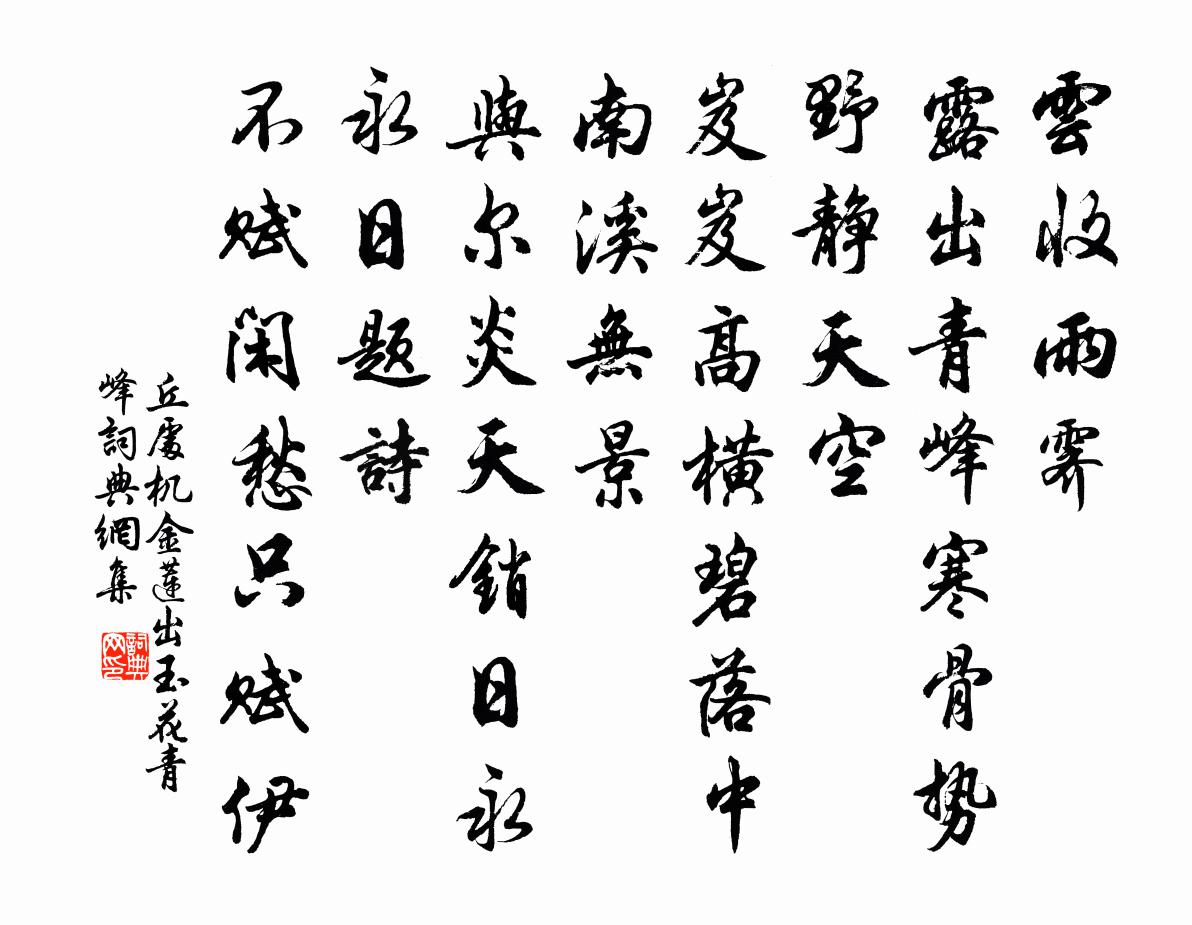 雲收雨霽
露出青峰寒骨势
野静天空
岌岌高橫碧落中
南溪無景
與尔炎天銷日永
永日题詩
不赋闲愁只赋伊
丘處机金蓮出玉花青
峰詞典網集
詞典网印